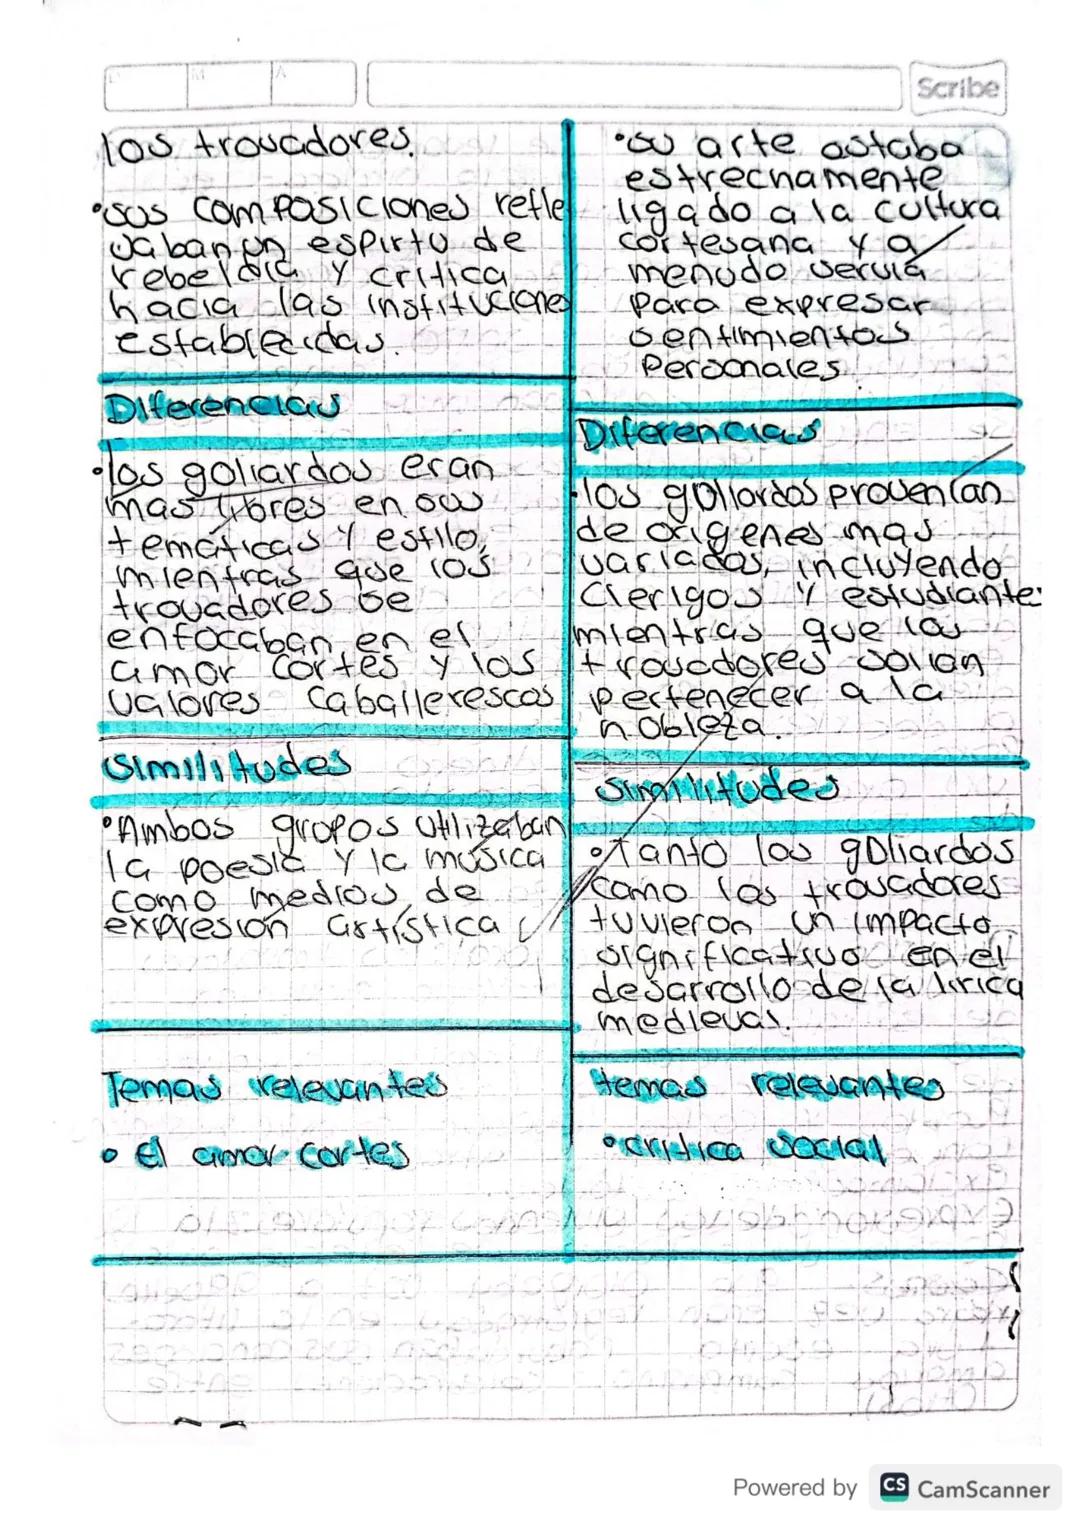 D
M
A
Scribe
los trovadores.
•sus composiciones refle
vaban un espirtu de
rebeldia y critica
hacia las instituciones
establecidas.
Diferencias
•los goliardos eran
mas libres en sus
temáticas y estilo,
mientras que los
trovadores se
enfocaban en el
amor cortes y los
valores caballerescos
similitudes
•Ambos grupos utilizaban
la poesia y la musica
como medios de
expresión artística
Temas relevantes
• El amor cortes
•su arte astaba
estrechamente
ligado a la cultura
cortesana y a
menudo servia
para expresar
sentimientos
Personales
Diferencias
•los goliardos provenian
de origenes mas
variados, incluyendo
clerigos y estudiantes
mientras que los
trovadores solian
pertenecer a la
nobleza.
similitudes
•Tanto los goliardos
como los trovadores
tuvieron un impacto
significativo en el
desarrollo de la lirica
medieval.
temas relevantes
•critica social
Powered by CS CamScanner